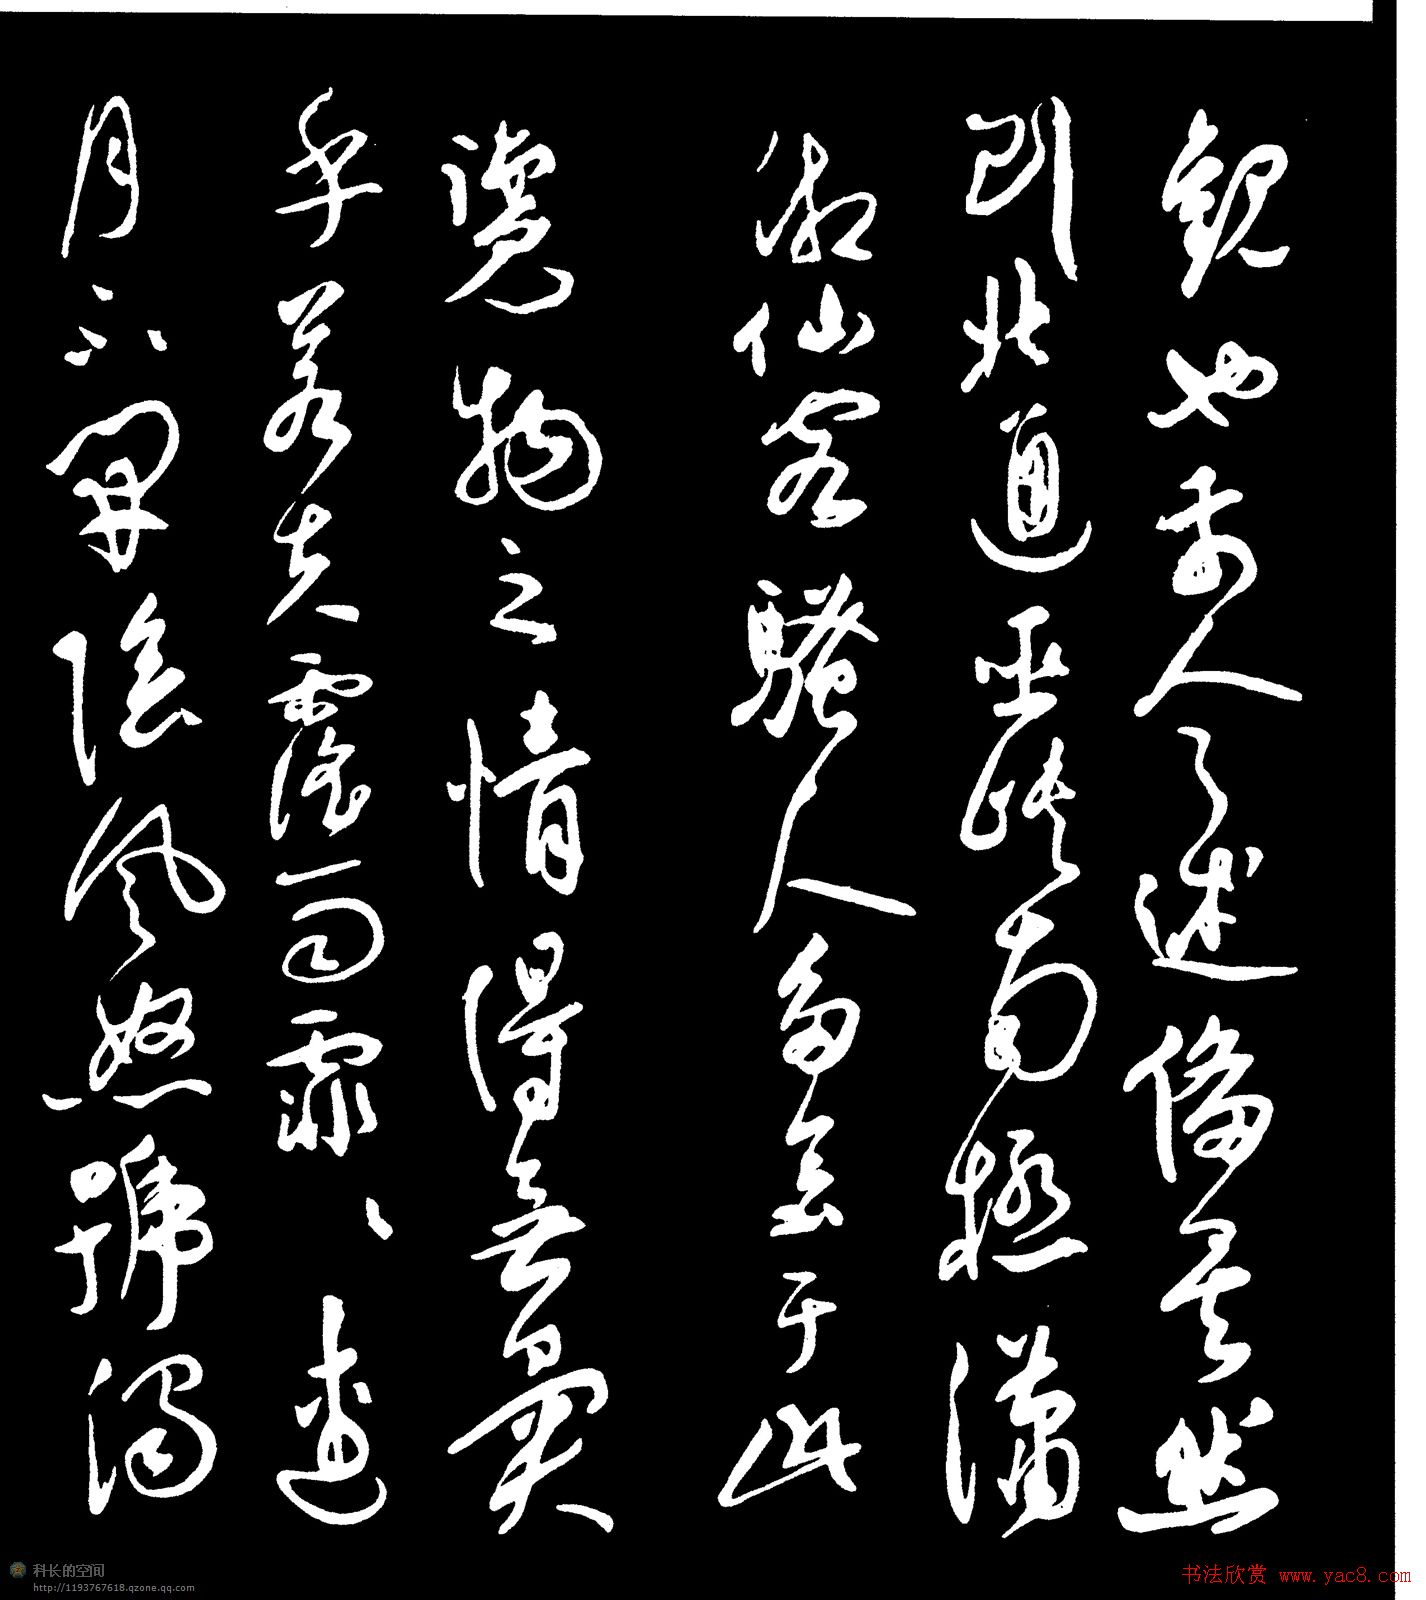 觀也前人之述備矣然
則北通巫峽南極瀟
湘仙客騷人多會于此
覽物之情得無異
乎若夫霪雨霏〻連
月不開陰風怒號濁
科长的空间
http://1193767618.qzone.qq.com
书法欣赏 www.yac8.com